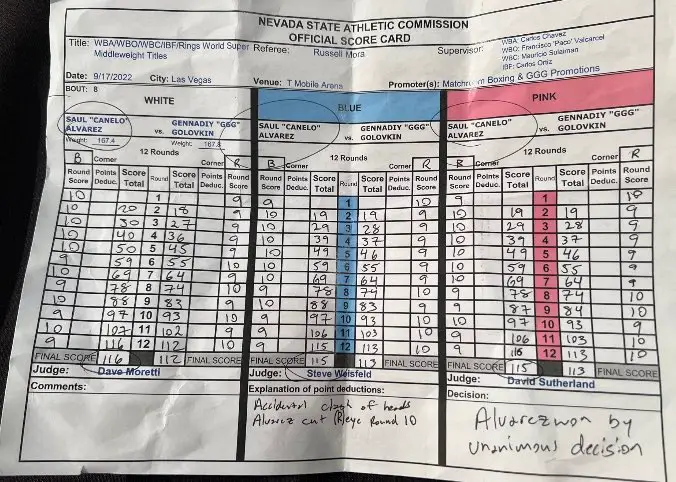 NEVADA STATE ATHLETIC COMMISSION
OFFICIAL SCORE CARD
Title: WBA/WBO/WBC/IBF/Rings World Super Middleweight Titles
Referee: Russell Mora
Supervisor: WBA: Carlos Chavez
WBO: Francisco "Paco" Valcarcel
WBC: Mauricio Sulaiman
IBF: Carlos Ortiz
Date: 9/17/2022 City: Las Vegas Venue: T Mobile Arena Promoter(s): Matchroom Boxing & GGG Promotions
BOUT: 8
WHITE BLUE PINK
SAUL "CANELO" ALVAREZ vs. GENNADIY "GGG" GOLOVKIN SAUL "CANELO" ALVAREZ vs. GENNADIY "GGG" GOLOVKIN SAUL "CANELO" ALVAREZ vs. GENNADIY "GGG" GOLOVKIN
Weight: 167.4 Weight: 167.8
12 Rounds 12 Rounds 12 Rounds
B Corner Corner R B Corner Corner R B Corner Corner R
Round Score Points Deduc. Score Total Round Score Total Points Deduc. Round Score Round Score Points Deduc. Score Total Round Score Total Points Deduc. Round Score Round Score Points Deduc. Score Total Round Score Total Points Deduc. Round Score
10 1 9 9 1 10 9 1 10
10 20 2 18 9 10 19 2 19 9 10 19 2 19 9
10 30 3 27 9 10 29 3 28 9 10 29 3 28 9
10 40 4 36 9 10 39 4 37 9 10 39 4 37 9
10 50 5 45 9 10 49 5 46 9 10 49 5 46 9
9 59 6 55 10 10 59 6 55 9 10 59 6 55 9
10 69 7 64 9 10 69 7 64 9 10 69 7 64 9
9 78 8 74 10 9 78 8 74 10 9 78 8 74 10
10 88 9 83 9 10 88 9 83 9 9 87 9 84 10
9 97 10 93 10 9 97 10 93 10 10 97 10 93 9
10 107 11 102 9 9 106 11 103 10 9 106 11 103 10
9 116 12 112 9 115 12 113 10 9 12 113 10
FINAL SCORE 116 112 FINAL SCORE FINAL SCORE 115 113 FINAL SCORE FINAL SCORE 115 113 FINAL SCORE
Judge: Dave Moretti Judge: Steve Weisfeld Judge: David Sutherland
Comments:
Explanation of point deductions:
Accidental clash of heads
Alvarez cut (R) eye Round 10
Decision:
Alvarez won by
unanimous decision